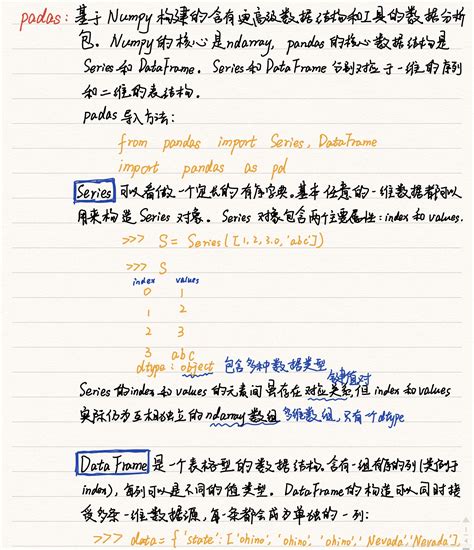 padas: 基于Numpy构建的含有更高级数据结构和工具的数据分析
包. Numpy的核心是ndarray, pandas的核心数据结构是
Series和DataFrame. Series和DataFrame分别对应于一维的序列
和二维的表结构.
padas导入方法:
from pandas import Series, DataFrame
import pandas as pd
Series 可以看做一个定长的有序字典. 基本任意的一维数据都可以
用来构造Series对象. Series对象包含两个主要属性: index和values.
>>> S = Series([1,2,3.0,'abc'])
>>> S
index values
0 1
1 2
2 3
3 abc
dtype: object 包含多种数据类型
键值对
Series的index和values的元素间虽存在对应关系, 但index和values
实际仍为互相独立的ndarray数组 多维数组, 只有一个dtype
DataFrame 是一个表格型的数据结构, 含有一组有序的列(类似于
index), 每列可以是不同的值类型. DataFrame的构造可以同时接
受多条一维数据源, 每一条都会成为单独的一列:
>>> data = {'state': ['ohino', 'ohino', 'ohino', 'Nevada', 'Nevada'],